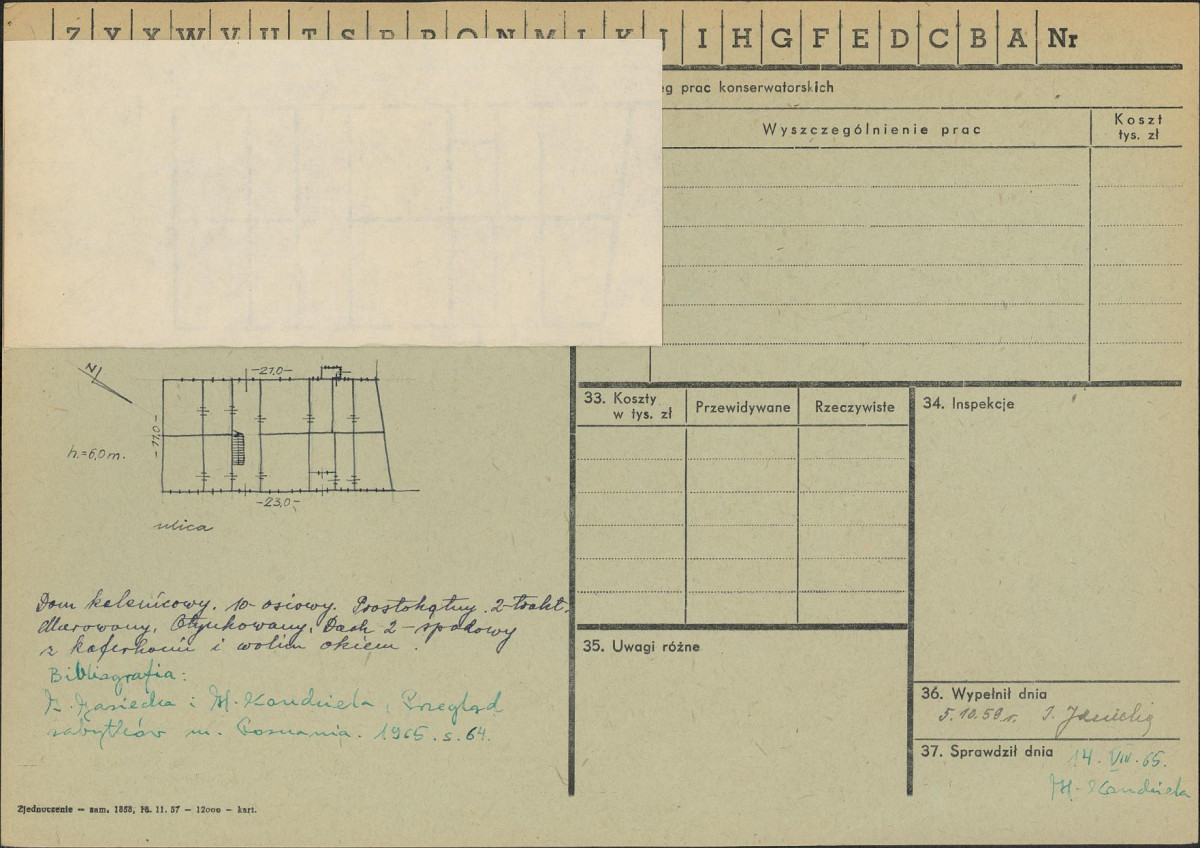 Z Y X W V U T S R P O N M L K J I H G F E D C B A Nr
eg prac konserwatorskich
Wyszczególnienie prac
Koszt
tys. zł
N
-21,0-
-11,0-
h.=6,0m.
-23,0-
ulica
Dom kalenicowy. 10 osiowy. Prostokątny. 2-trakt.
Murowany. Otynkowany. Dach 2-spadowy
z kaferkami i wolim okiem.
Bibliografia:
i H. Kondziela, Przegląd
zabytków m. Poznania. 1965. s. 64.
Zjednoczenie – zam. 1858, 11. 57 – 12000 – kart.
33. Koszty
w tys. zł
Przewidywane
Rzeczywiste
34. Inspekcje
35. Uwagi różne
36. Wypełnił dnia
5.10.59 r.
37. Sprawdził dnia
14. VIII. 65.
H. Kondziela